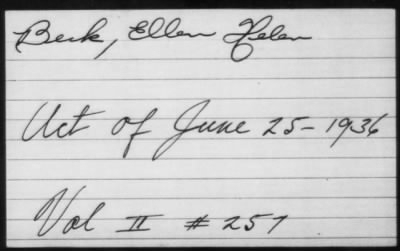 Beck, Ellen Helen
Act of June 25-1936
Vol II #257